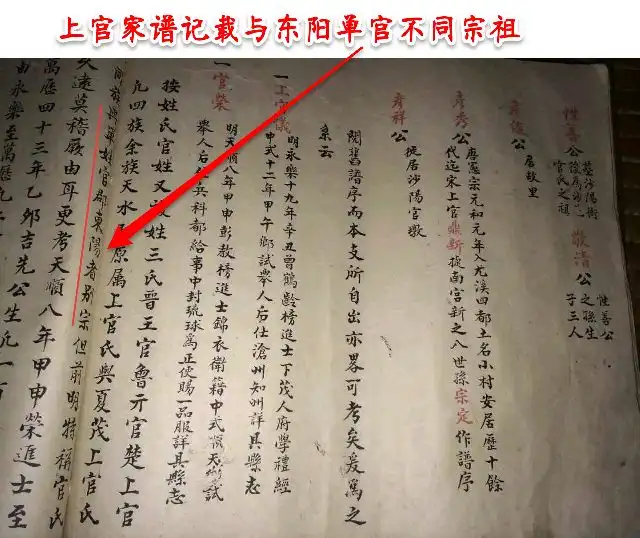 上官家谱记载与东阳单官不同宗祖
性善公 墓沙陽衙
後為沙
官氏之祖
敬清公 性善公
之孫生
子三人
彥俊公 居故里
彥秀公 唐憲宗元和元年入尤溪四都土名小村安居歷十餘
代迄宋上官鼎新披南宮新之八世孫宗定作譜序
彥祥公 徙居沙陽官墩
閱舊譜序而本支所自出亦畧可考矣爰為之
系云
一上官儀 明永樂十九年辛丑曾鶴齡榜進士下茂人府學禮經
中式十二年甲午鄉試舉人后仕滄州知州詳具縣志
一官榮 明天順八年甲申彭教榜進士錦衣衛籍中式順天鄉試
舉人后仕兵科都給事中封琉球為正使賜一品服詳具縣志
按姓氏官姓又改姓三氏晉王官魯亓官楚上官
凡四族余族天水原属上官氏與夏茂上官氏
族單姓官郡東陽者別宗但前明特稱官氏
久遠莫稽厥由耳更考天順八年甲申榮進士至
萬歷四十三年乙夘吉先公生凡一百
由永樂至萬歷